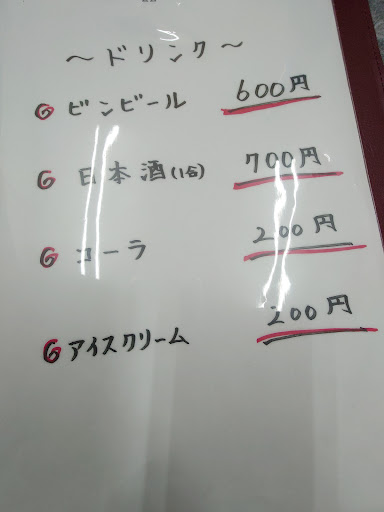 ～ドリンク～
ビンビール 600円
日本酒(1合) 700円
コーラ 200円
アイスクリーム 200円